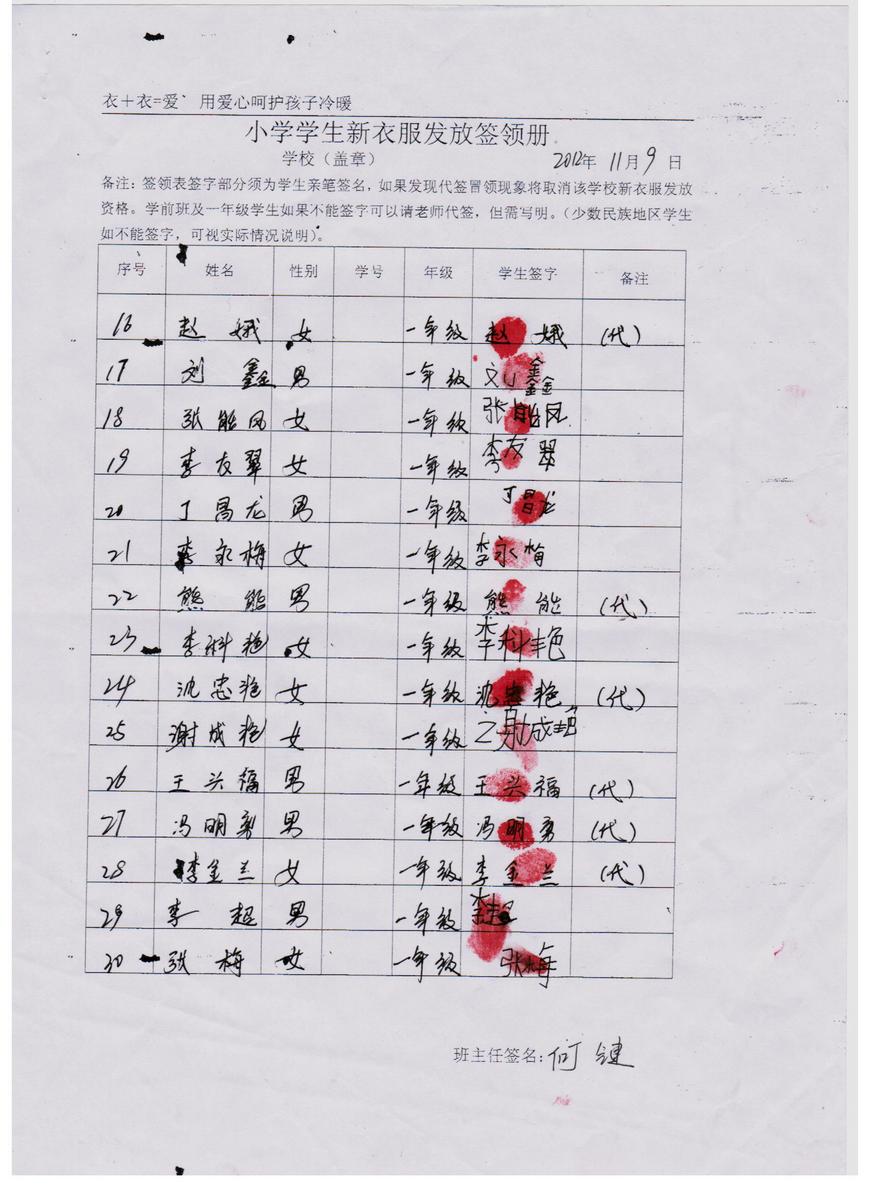 衣＋衣=爱 用爱心呵护孩子冷暖
小学学生新衣服发放签领册
学校（盖章） 2012年 11月 9 日
备注：签领表签字部分须为学生亲笔签名，如果发现代签冒领现象将取消该学校新衣服发放
资格。学前班及一年级学生如果不能签字可以请老师代签，但需写明。（少数民族地区学生
如不能签字，可视实际情况说明）。
序号 姓名 性别 学号 年级 学生签字 备注
16 赵娥 女 一年级 赵娥 (代)
17 刘鑫 男 一年级 刘鑫
18 张能凤 女 一年级 张能凤
19 李友翠 女 一年级 李友翠
20 丁昌龙 男 一年级 丁昌龙
21 李永梅 女 一年级 李永梅
22 熊能 男 一年级 熊能 (代)
23 李科艳 女 一年级 李科艳
24 沈忠艳 女 一年级 沈忠艳 (代)
25 谢成艳 女 一年级 谢成艳
26 王兴福 男 一年级 王兴福 (代)
27 冯明勇 男 一年级 冯明勇 (代)
28 李金兰 女 一年级 李金兰 (代)
29 李超 男 一年级 李超
30 张梅 女 一年级 张梅
班主任签名：何键